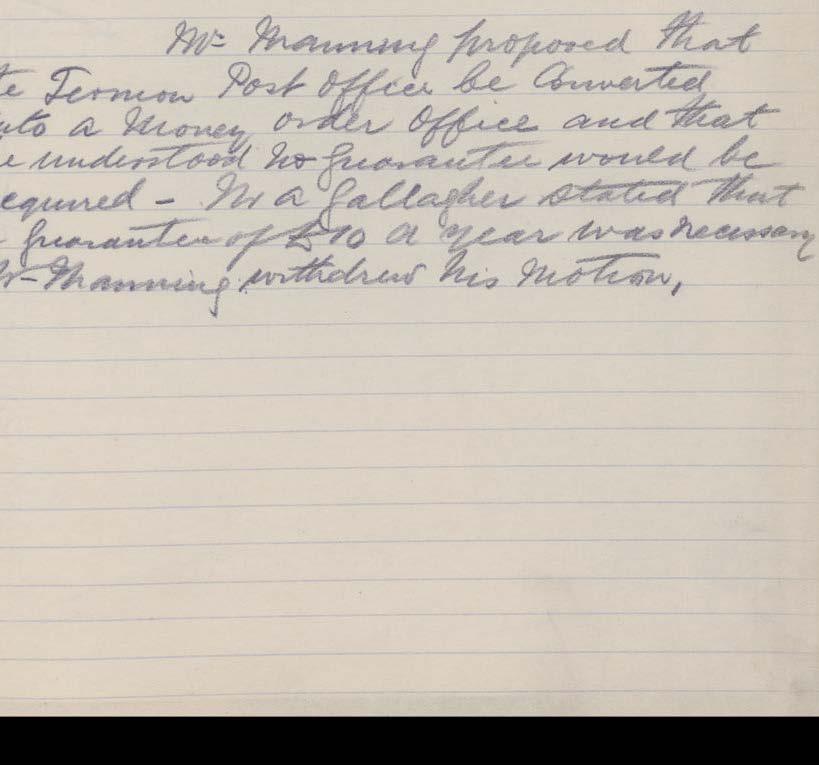 Mr Manning proposed that
te Termon Post Office be Converted
nto a Money order Office and that
e understood no guarantee would be
equired - Mr A Gallagher stated that
guarantee of £10 a year was necessary
Mr Manning withdrew his Motion,